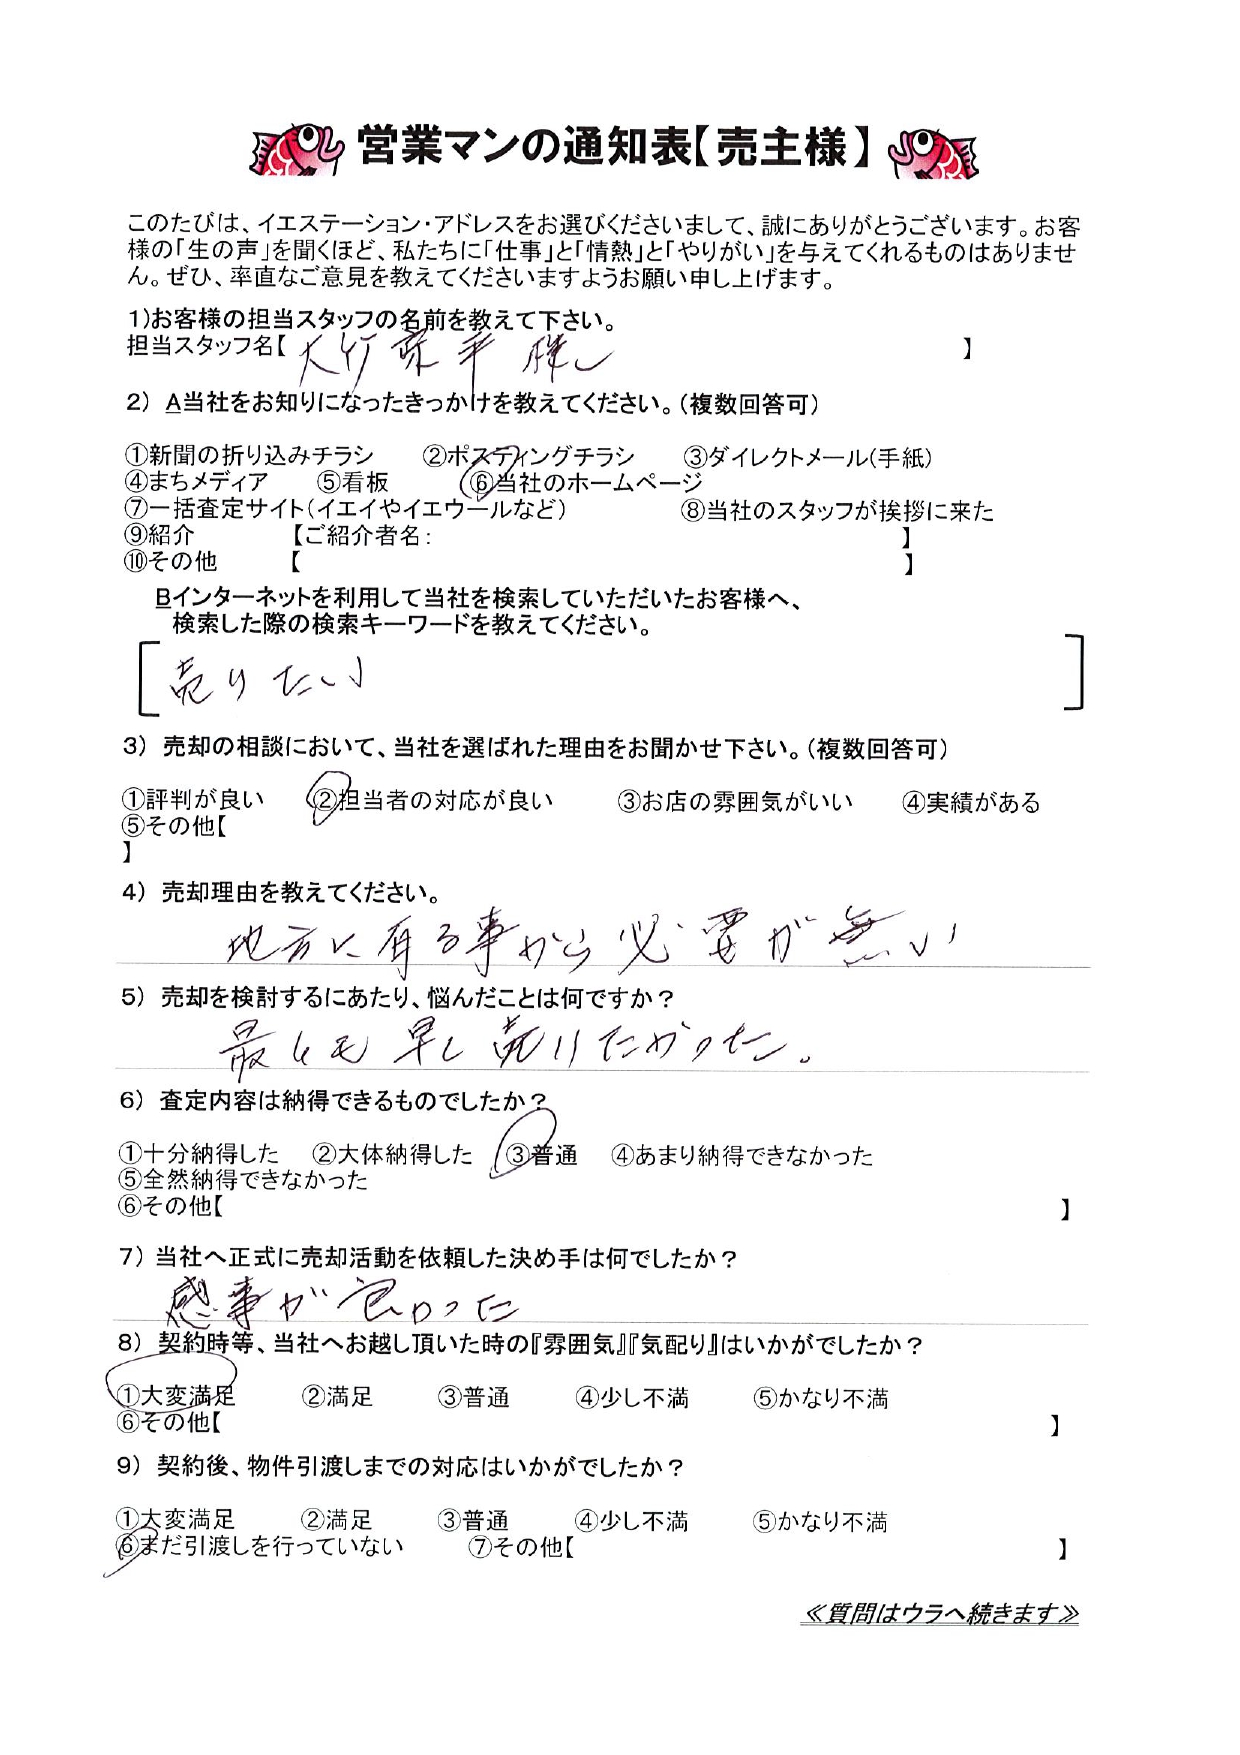 営業マンの通知表【売主様】
このたびは、イエステーション・アドレスをお選びくださいまして、誠にありがとうございます。お客
様の「生の声」を聞くほど、私たちに「仕事」と「情熱」と「やりがい」を与えてくれるものはありませ
ん。ぜひ、率直なご意見を教えてくださいますようお願い申し上げます。
1)お客様の担当スタッフの名前を教えて下さい。
担当スタッフ名【 大竹 平 様 】
2) A当社をお知りになったきっかけを教えてください。（複数回答可）
①新聞の折り込みチラシ ②ポスティングチラシ ③ダイレクトメール(手紙)
④まちメディア ⑤看板 ⑥当社のホームページ
⑦一括査定サイト(イエイやイエウールなど) ⑧当社のスタッフが挨拶に来た
⑨紹介 【ご紹介者名： 】
⑩その他 【 】
Bインターネットを利用して当社を検索していただいたお客様へ、
検索した際の検索キーワードを教えてください。
[ 売りたい ]
3) 売却の相談において、当社を選ばれた理由をお聞かせ下さい。（複数回答可）
①評判が良い ②担当者の対応が良い ③お店の雰囲気がいい ④実績がある
⑤その他【
】
4) 売却理由を教えてください。
地方に有る事から必要が無い
5) 売却を検討するにあたり、悩んだことは何ですか？
最しも早し売りたかった。
6) 査定内容は納得できるものでしたか？
①十分納得した ②大体納得した ③普通 ④あまり納得できなかった
⑤全然納得できなかった
⑥その他【 】
7) 当社へ正式に売却活動を依頼した決め手は何でしたか？
感事が良かった
8) 契約時等、当社へお越し頂いた時の『雰囲気』『気配り』はいかがでしたか？
①大変満足 ②満足 ③普通 ④少し不満 ⑤かなり不満
⑥その他【 】
9) 契約後、物件引渡しまでの対応はいかがでしたか？
①大変満足 ②満足 ③普通 ④少し不満 ⑤かなり不満
⑥まだ引渡しを行っていない ⑦その他【 】
≪質問はウラへ続きます≫